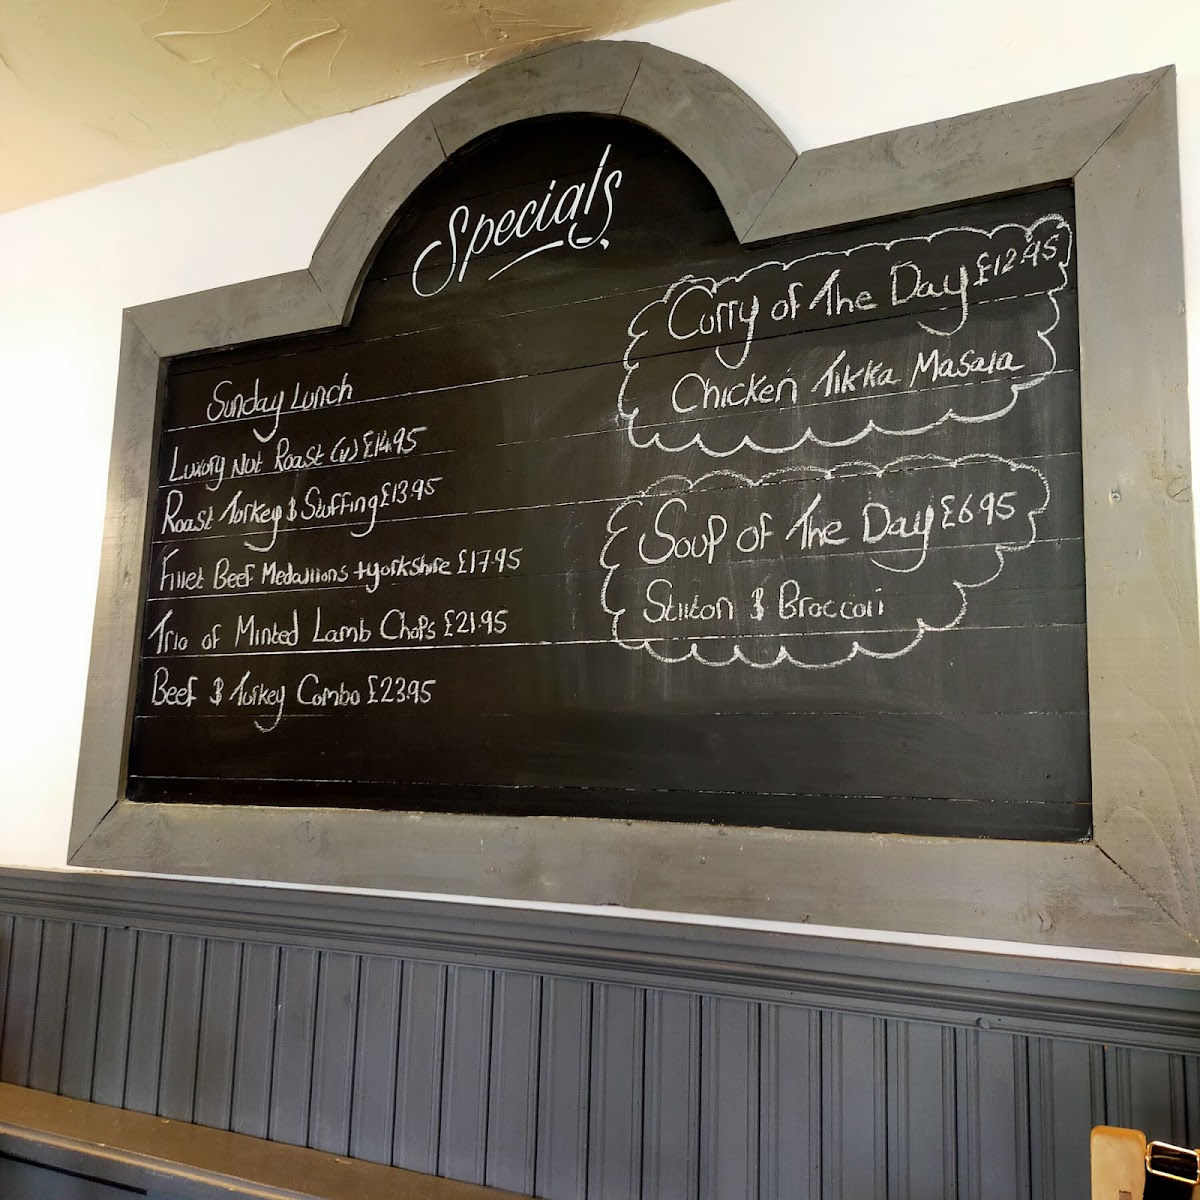 Specials
Sunday Lunch
Luxury Nut Roast (v) £14.95
Roast Turkey & Stuffing £13.95
Fillet Beef Medallions + Yorkshire £17.95
Trio of Minted Lamb Chops £21.95
Beef & Turkey Combo £23.95
Curry of The Day £12.95
Chicken Tikka Masala
Soup of The Day £6.95
Stilton & Broccoli